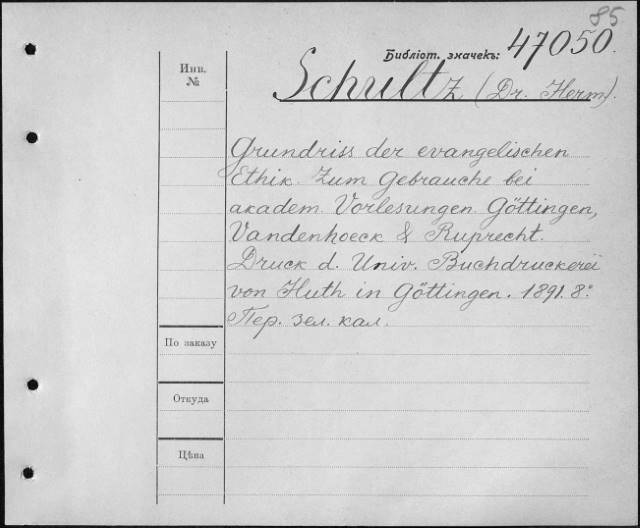 85
Библіот. значекъ: 47050.
Инв.
№
Schultz (Dr. Herm).
Grundriss der evangelischen
Ethik. Zum Gebrauche bei
akadem. Vorlesungen. Göttingen,
Vandenhoeck & Ruprecht.
Druck d. Univ. Buchdruckerei
von Huth in Göttingen. 1891. 8:
Пер. зел. кал.
По заказу
Откуда
Цѣна